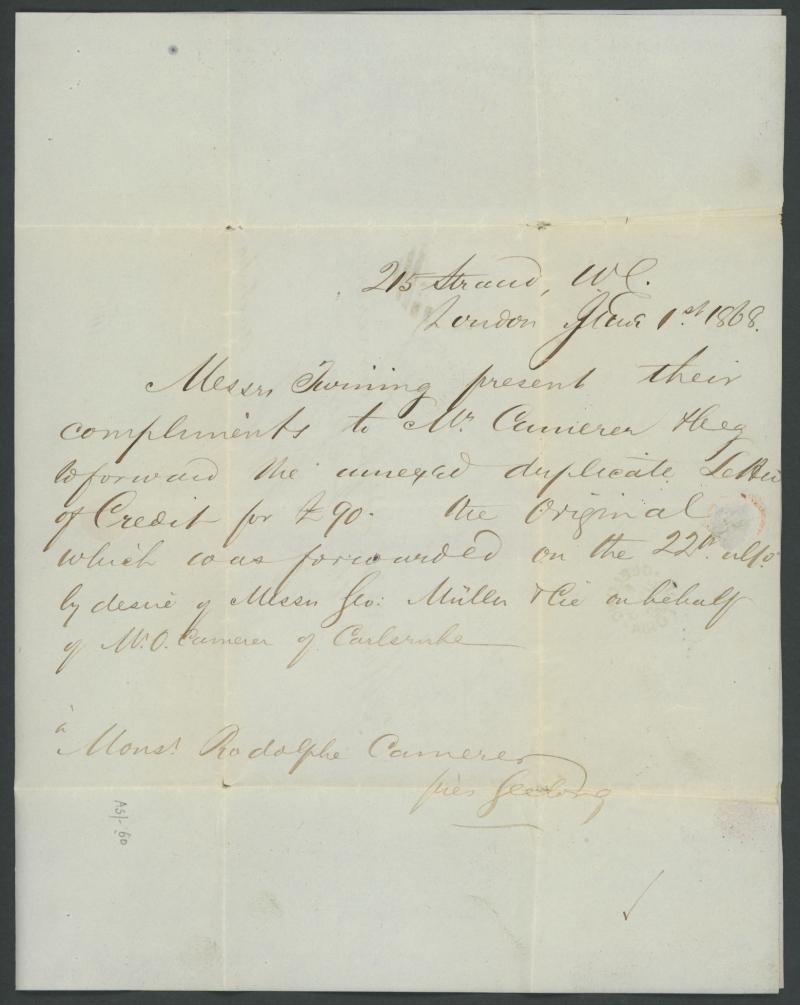 215 Strand, W C.
London Jany 1st. 1868.
Messrs Twining present their
compliments to Mr. Camerer & beg
to forward the annexed duplicate Letter
of Credit for £90. the Original
which was forwarded on the 22d. ulto.
by desire of Messrs Geo: Müller & Cie on behalf
of Mr. O. Camerer of Carlsruhe
à
Monsr. Rodolphe Camerer
près Geelong
A5/- 60